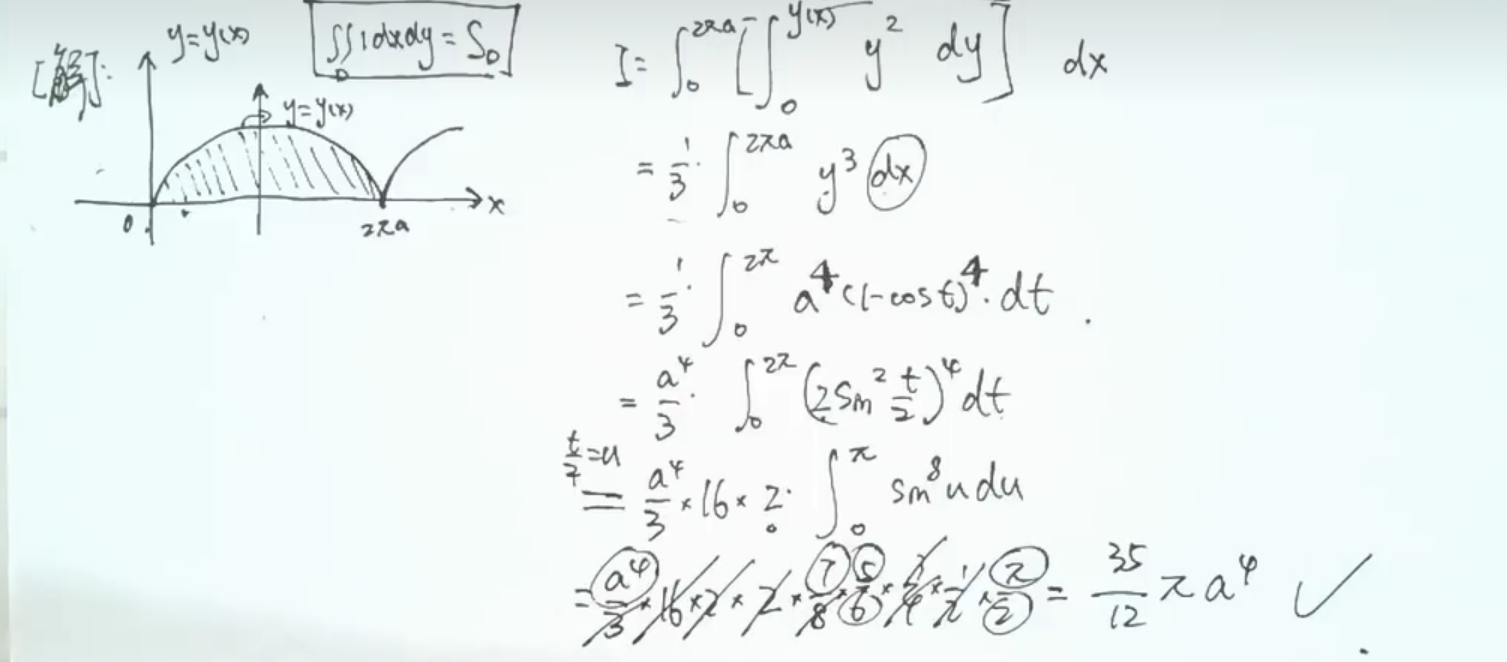 [解]:
y=y(x)
∬_D 1dxdy = S_D
y=y(x)
0
2πa
x
I = ∫_0^{2πa} [∫_0^{y(x)} y² dy] dx
= 1/3 · ∫_0^{2πa} y³ dx
= 1/3 · ∫_0^{2π} a⁴(1-cost)⁴ · dt
= a⁴/3 · ∫_0^{2π} (2sin² t/2)⁴ dt
t/2=u
= a⁴/3 × 16 × 2 · ∫_0^π sin⁸u du
= a⁴/3 × 16 × 2 × 2 × 7/8 × 5/6 × 3/4 × 1/2 × π/2 = 35/12 πa⁴ ✓